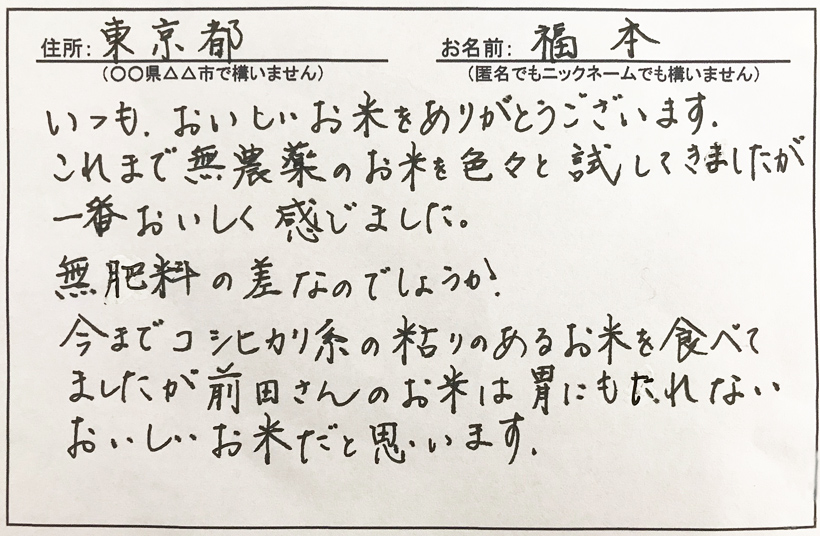 住所: 東京都 お名前: 福本
(〇〇県△△市で構いません) (匿名でもニックネームでも構いません)
いつも、おいしいお米をありがとうございます。
これまで無農薬のお米を色々と試してきましたが
一番おいしく感じました。
無肥料の差なのでしょうか。
今までコシヒカリ系の粘りのあるお米を食べて
ましたが前田さんのお米は胃にもたれない
おいしいお米だと思います。